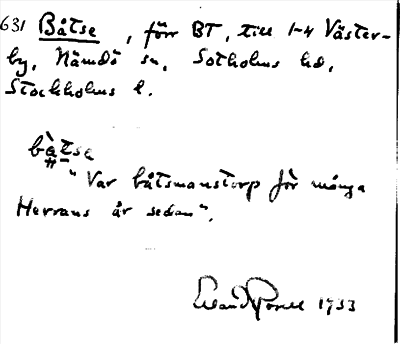 631 Båtse, förr BT, till 1-4 Väster-
by, Nämdö sn, Sotholms hd,
Stockholms l.
bàtse
"Var båtsmanstorp för många
Herrans år sedan".
1933